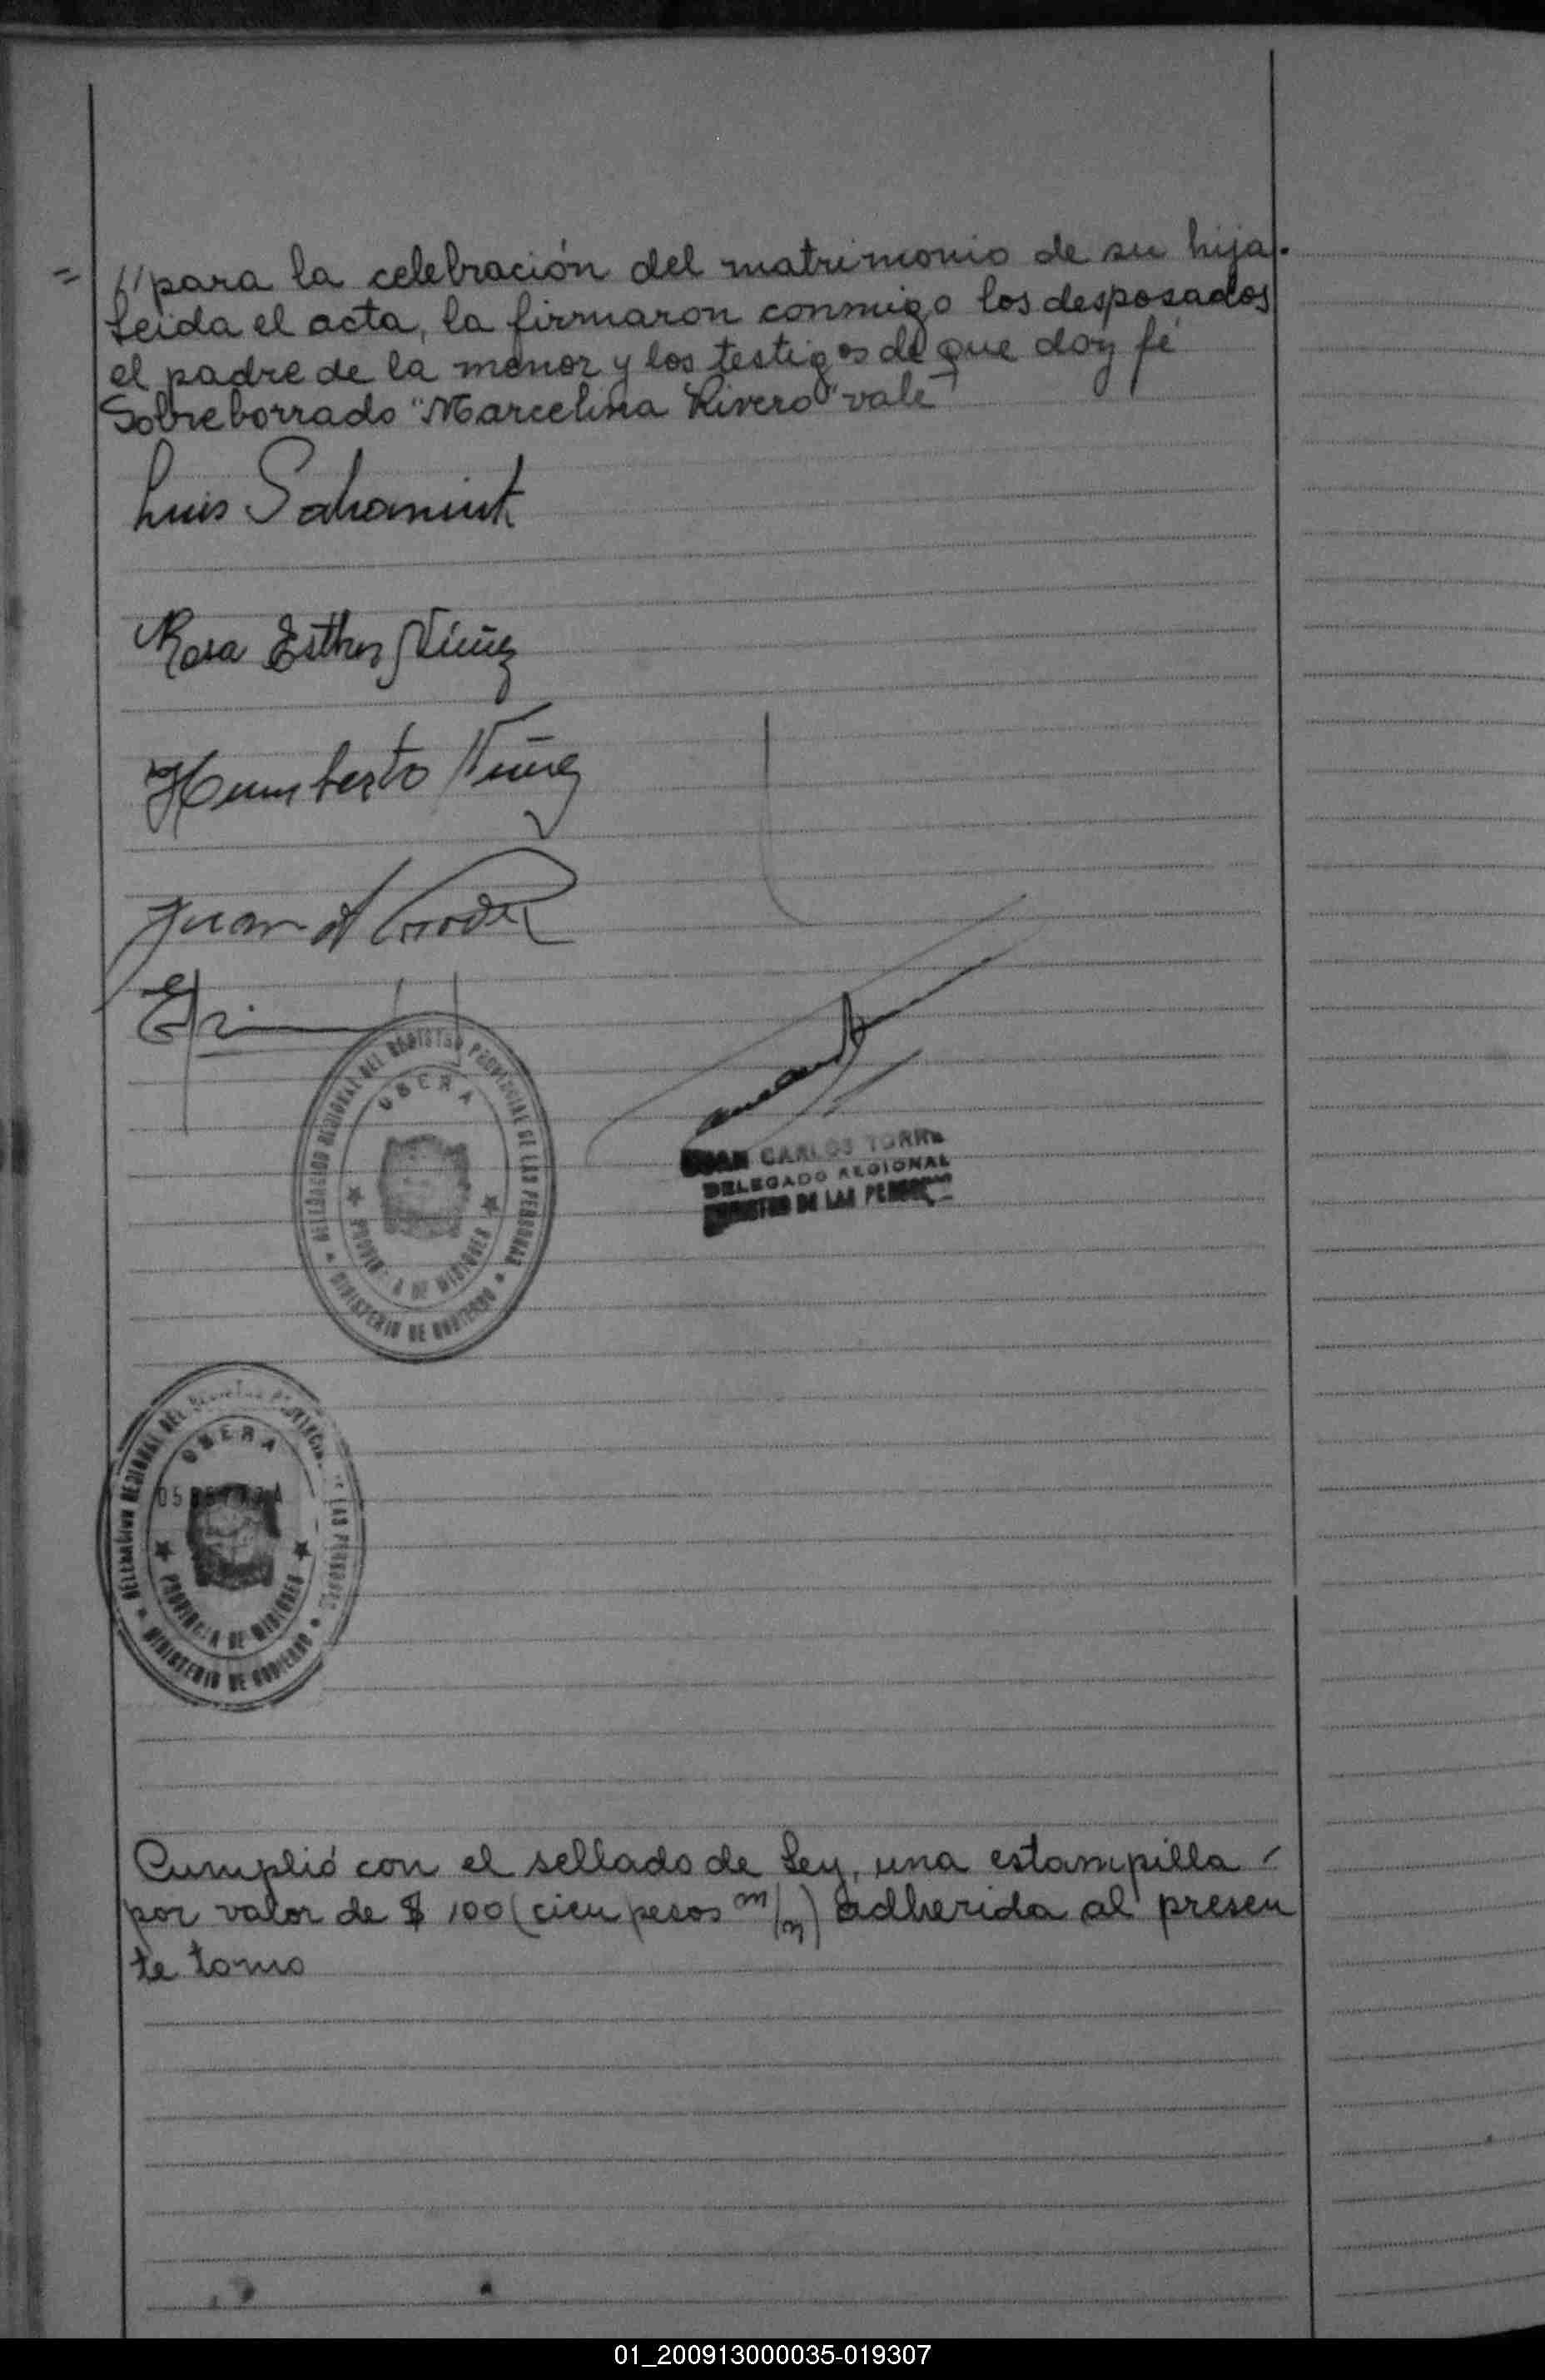 = //para la celebración del matrimonio de su hija.
Leida el acta, la firmaron conmigo los desposados
el padre de la menor y los testigos de que doy fé
Sobreborrado "Marcelina Rivero" vale
Luis
Rosa Esther Núñez
Humberto Núñez
Juan A
DELEGACION REGIONAL DEL REGISTRO PROVINCIAL DE LAS PERSONAS
OBERA
PROVINCIA DE MISIONES
MINISTERIO DE GOBIERNO
JUAN CARLOS TORRE
DELEGADO REGIONAL
REGISTRO DE LAS PERSONAS
DELEGACION REGIONAL DEL REGISTRO PROVINCIAL DE LAS PERSONAS
OBERA
PROVINCIA DE MISIONES
MINISTERIO DE GOBIERNO
Cumplió con el sellado de Ley, una estampilla
por valor de $ 100 (cien pesos m/n) adherida al presen
te tomo
01_200913000035-019307